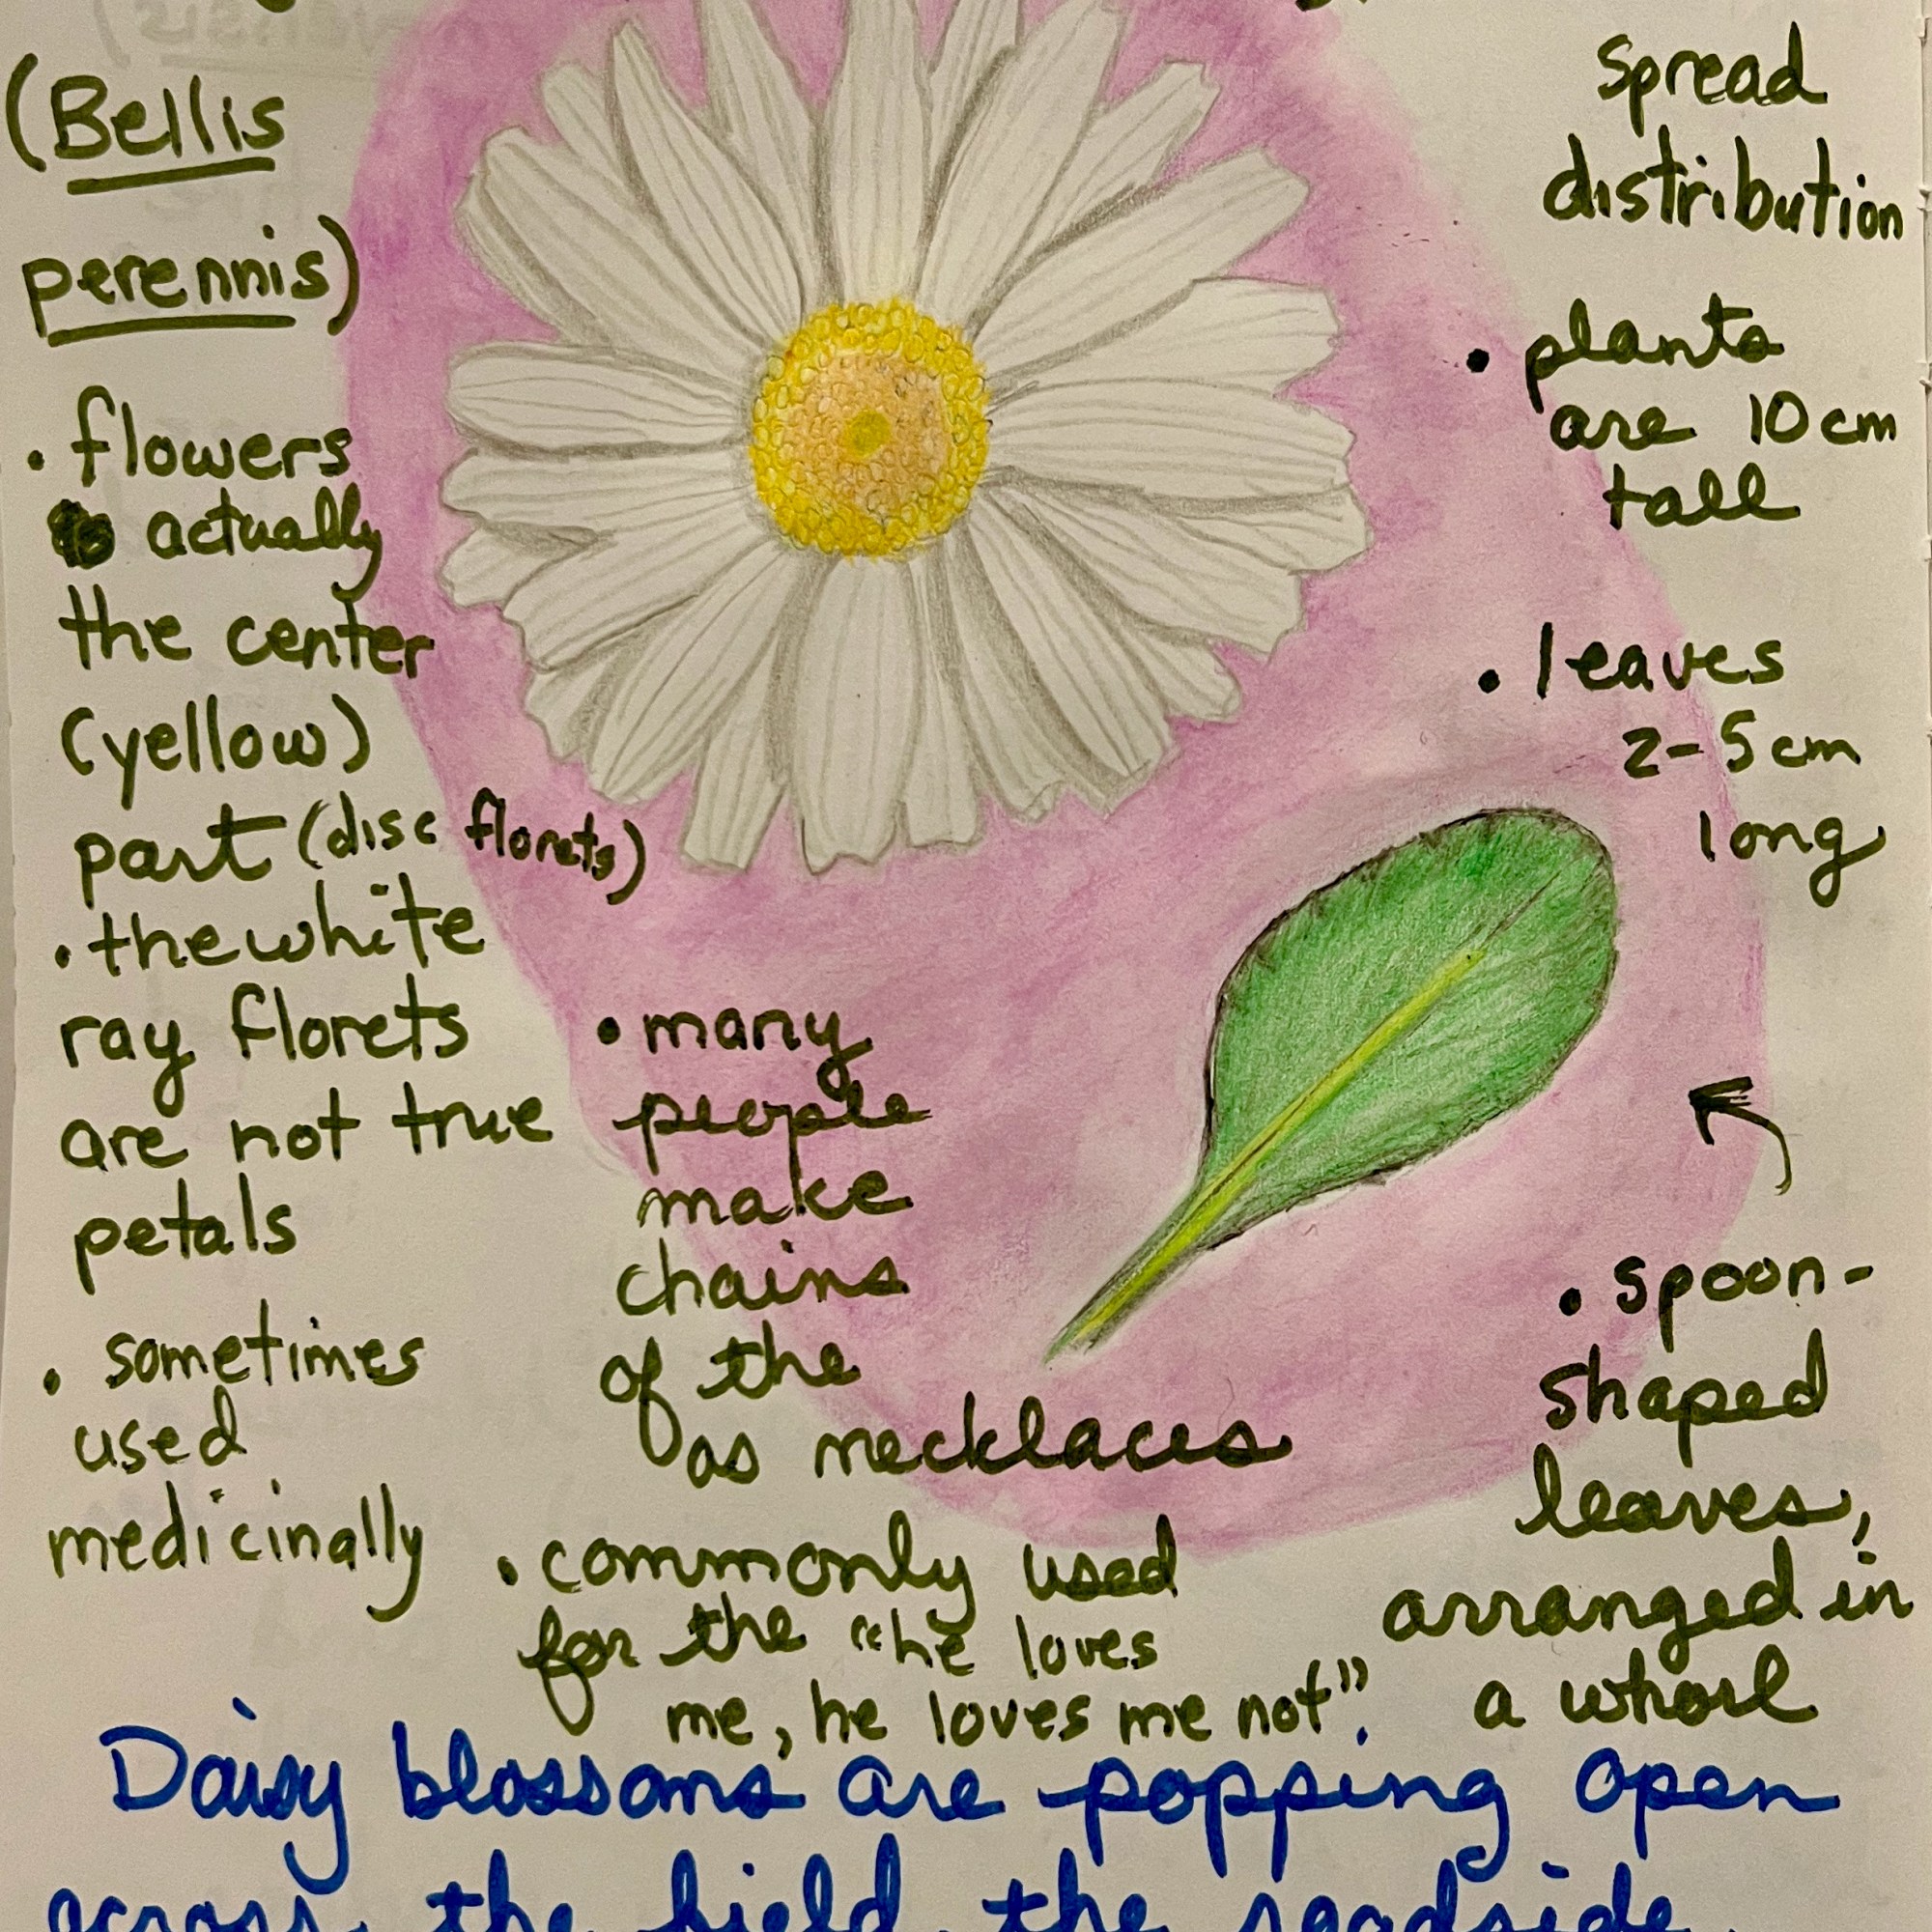 (Bellis
perennis)
• flowers
actually
the center
(yellow)
part (disc florets)
• the white
ray florets
are not true
petals
• sometimes
used
medicinally
• many
people
make
chains
of the
as necklaces
• commonly used
for the "he loves
me, he loves me not".
spread
distribution
• plants
are 10 cm
tall
• leaves
2-5 cm
long
• spoon-
shaped
leaves,
arranged in
a whorl
Daisy blossoms are popping open
across the field, the roadside,